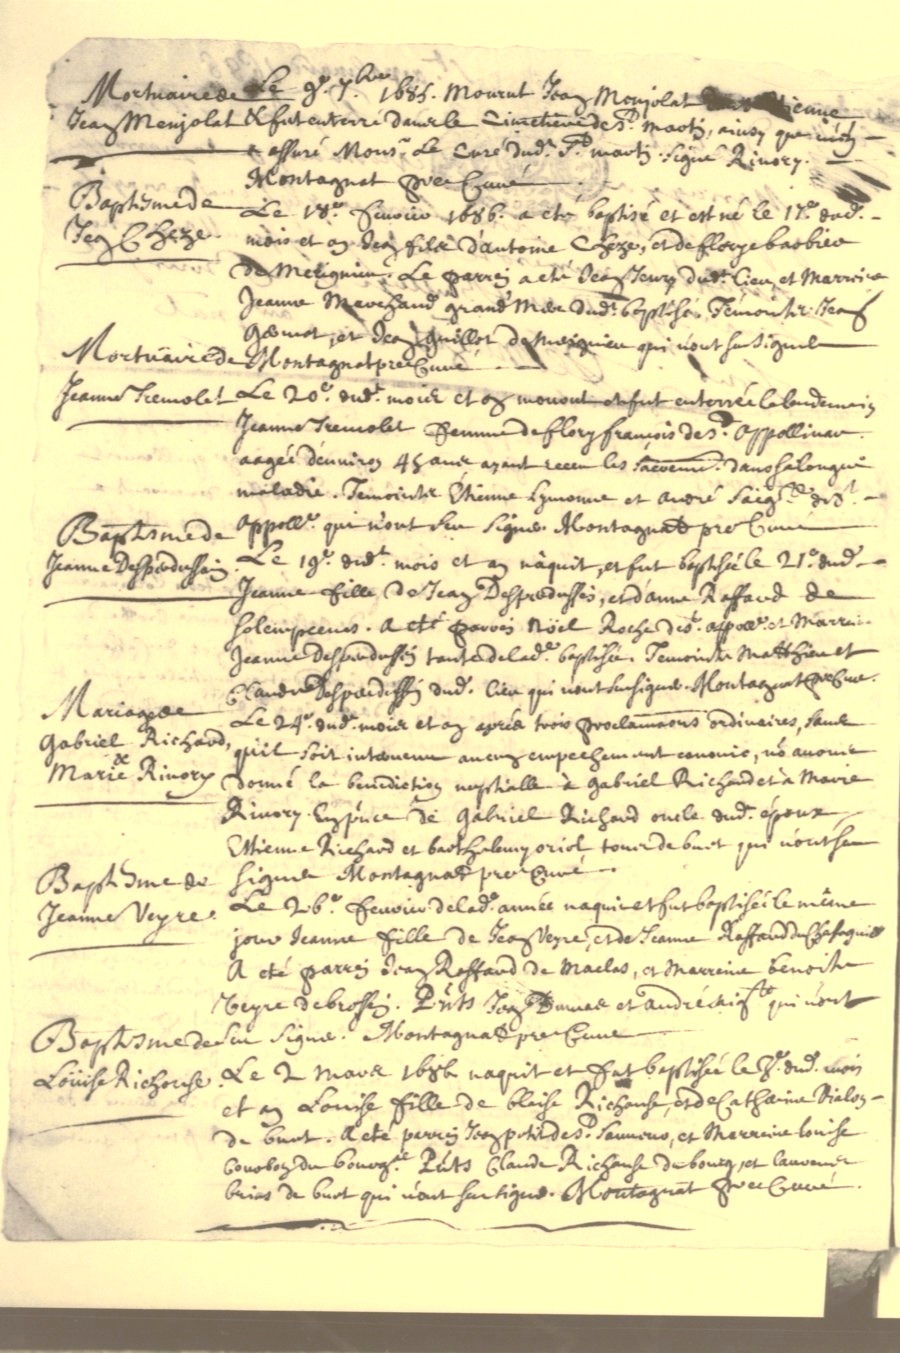 Mortuaire de
Jean Menjolat
Le 9e. 7bre 1685. Mourut Jean Menjolat
& fut enterré dans le Cimetiere de St. Martin, ainsy que m'a
assuré Monsr. Le Curé dud. St. martin. Signé Rivory.
Montagnat pre Curé
Baptisme de
Jean Cheze
Le 18e. Fevrier 1686. a eté baptisé et est né le 17e. dud.
mois et an Jean fils d'antoine Cheze, et de florye barbier
de Meignieu. Le parrein a eté Jean dud. lieu, et Marreine
Jeanne Marchand grand Mere dud. baptisé. Temoints Jean
et Jean Guillot de Meignieu qui n'ont sceu signer
Montagnat pre Curé
Mortuaire de
Jeanne Tremolet
Le 20e. dud. mois et an mourut et fut enterrée le lendemain
Jeanne Tremolet Femme de flory françois de St. Appollinar
aagée d'environ 45 ans ayant receu les sacremts. dans sa longue
maladie. Temoints Etienne Lymonne et André de St.
Appollr. qui n'ont sceu signer Montagnat pre Curé
Baptisme de
Jeanne Despredussein
Le 19e. dud. mois et an nâquit, et fut baptisée le 21e. dud.
Jeanne fille de Jean et d'anne Raffard de
A eté parrein Nöel Roche de St. appolr. et Marreine
Jeanne tante de lad. baptisée. Temoints Matthieu et
Claude dud. lieu qui n'ont sceu signer. Montagnat pre Curé.
Mariage de
Gabriel Richard,
&
Marie Rivory
Le 24e. dud. mois et an aprés trois proclamaons ordinaires, sans
qu'il soit intervenu aucun empechement canonic, nous avons
donné la benediction nuptialle à Gabriel Richard et à Marie
Rivory. En p'nce de Gabriel Richard oncle dud. époux
Ettienne Richard et barthelemy oriol tous de buet qui n'ont sceu
signer Montagnat pre Curé
Baptisme de
Jeanne Veyre.
Le 26e. Fevrier de lad. année naquit et fut baptisée le même
jour Jeanne fille de Jean Veyre, et de Jeanne Raffard
A eté parrein Jean Raffard de Maclas, et Marreine benoite
Veyre de brossein. P'nts Jean et André qui n'ont
sceu signer. Montagnat pre Curé
Baptisme de
Loüise Richouse.
Le 2 Mars 1686 naquit et fut baptisée le 3e. dud. mois
et an Louise fille de blaise Richouse, et de Catherine Rialon
de buet. A eté parrein Jean petit de St. Sauveur, et Marreine louise
du bourg P'nts Claude Richouse du bourg, et laurent
de buet qui n'ont sceu signer. Montagnat pre Curé.